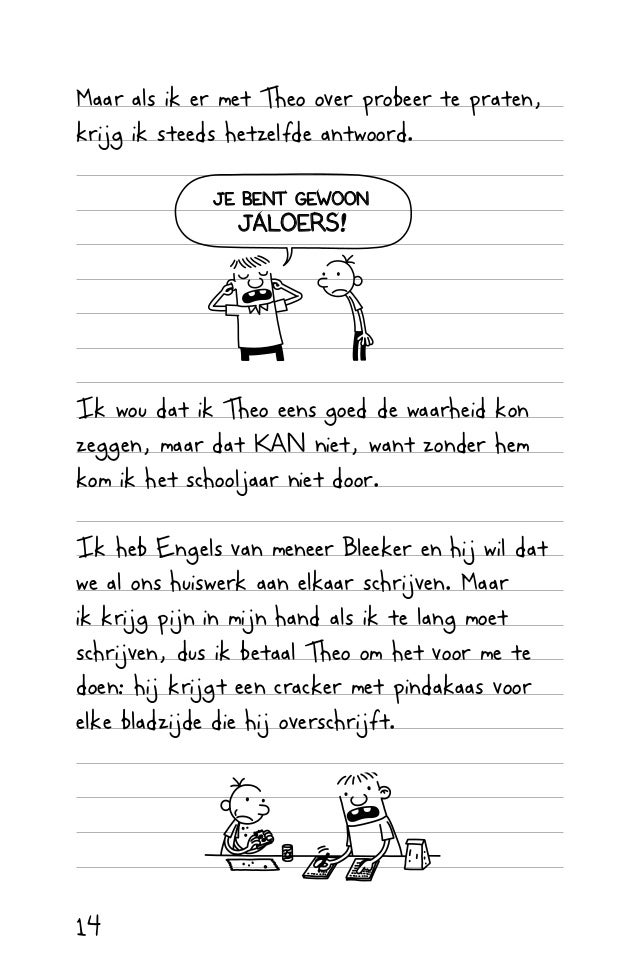 Maar als ik er met Theo over probeer te praten,
krijg ik steeds hetzelfde antwoord.
JE BENT GEWOON
JALOERS!
Ik wou dat ik Theo eens goed de waarheid kon
zeggen, maar dat KAN niet, want zonder hem
kom ik het schooljaar niet door.
Ik heb Engels van meneer Bleeker en hij wil dat
we al ons huiswerk aan elkaar schrijven. Maar
ik krijg pijn in mijn hand als ik te lang moet
schrijven, dus ik betaal Theo om het voor me te
doen: hij krijgt een cracker met pindakaas voor
elke bladzijde die hij overschrijft.
14